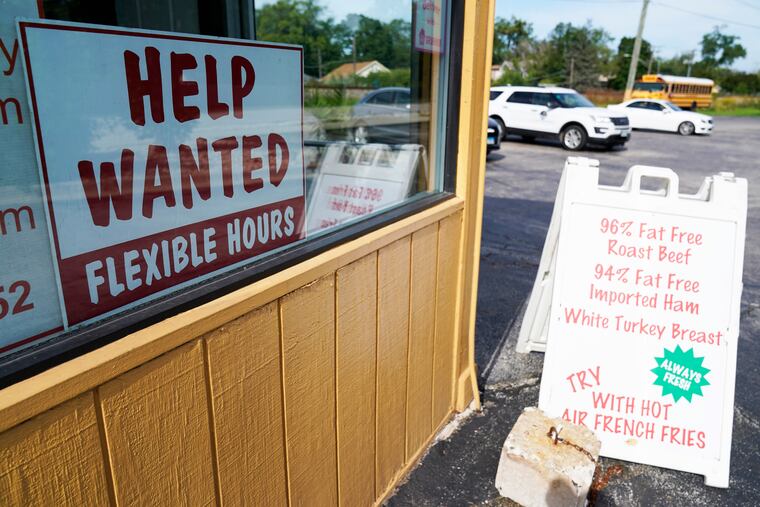 HELP
WANTED
FLEXIBLE HOURS
y
m
m
52
96% Fat Free
Roast Beef
94% Fat Free
Imported Ham
White Turkey Breast
ALWAYS
FRESH
TRY
WITH HOT
AIR FRENCH FRIES
96% Fat Free